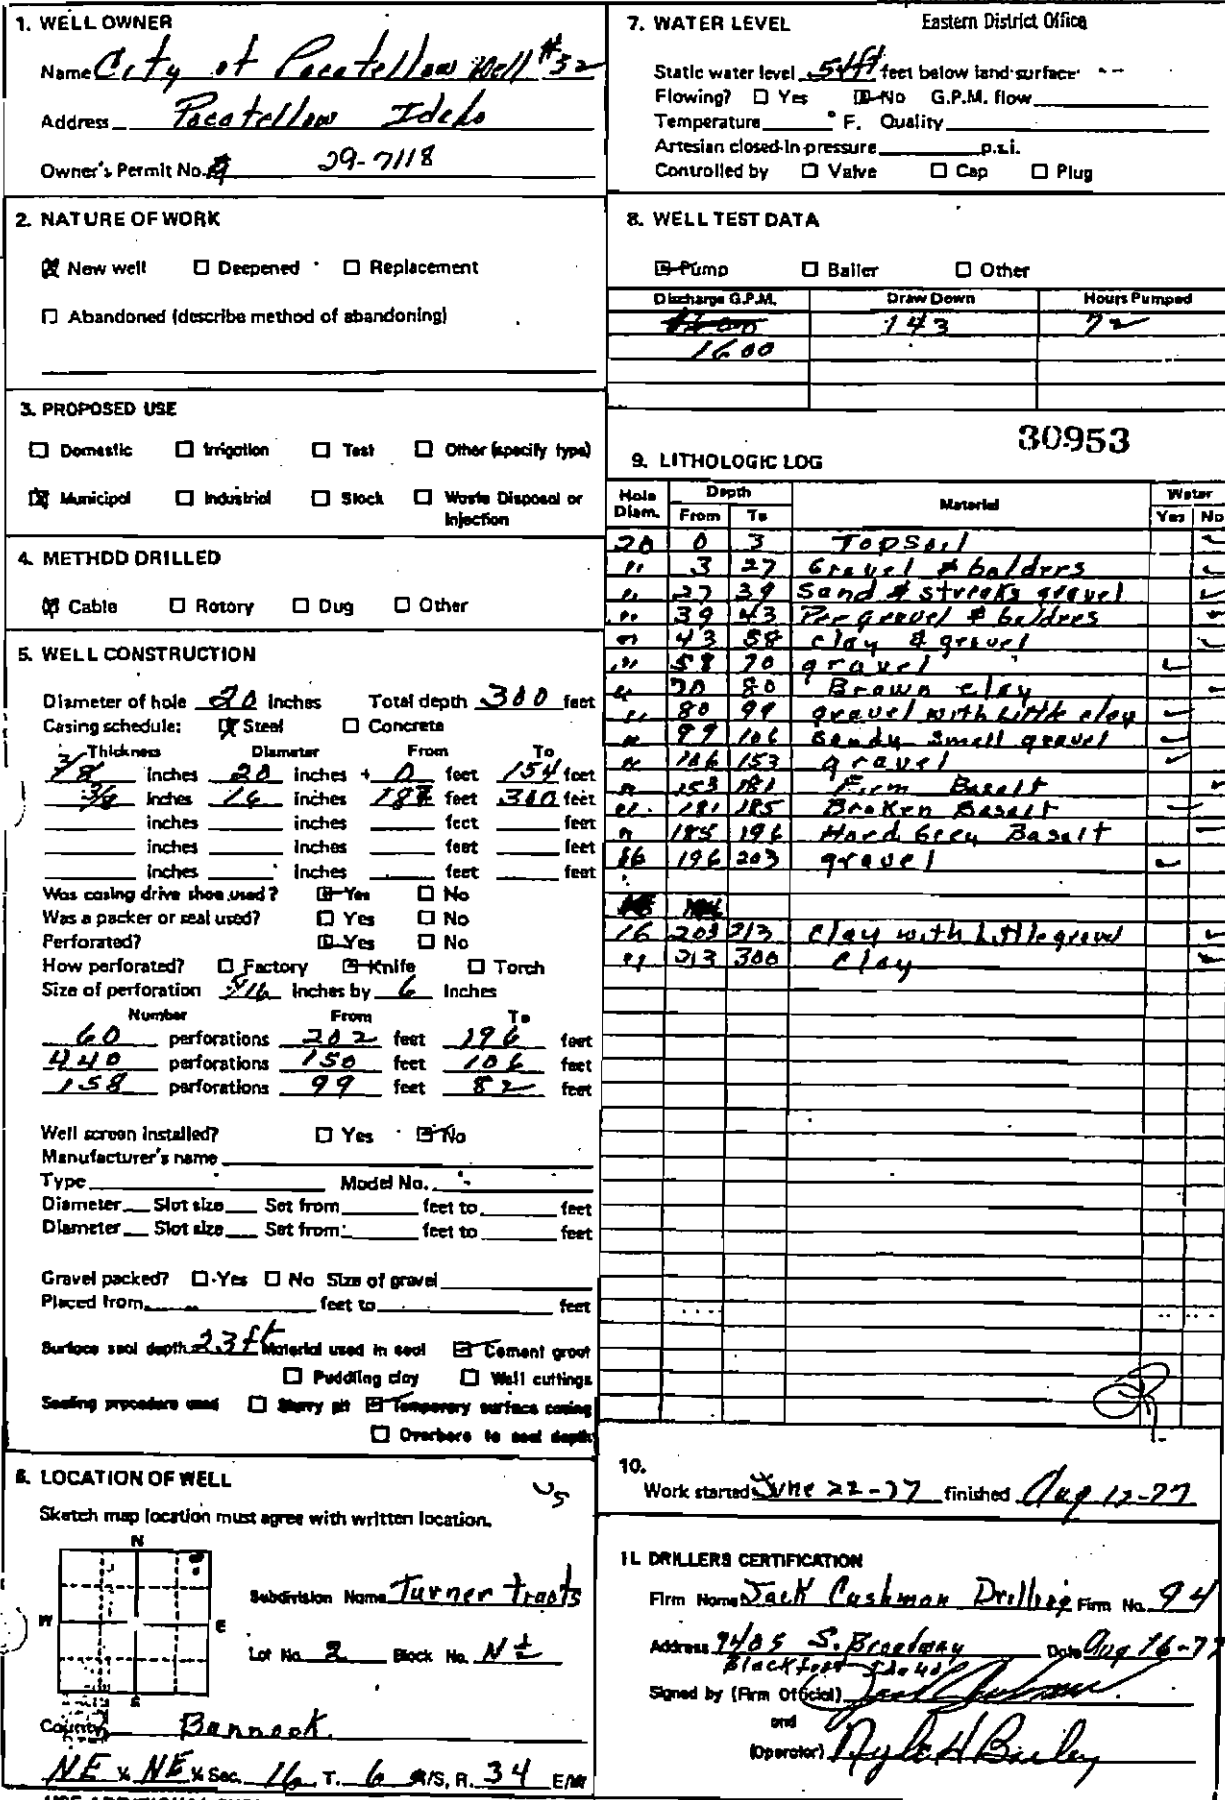 1. WELL OWNER
Name City of Pocatellow Well #32
Address Pocatellow Idaho
Owner's Permit No. 29-7118
2. NATURE OF WORK
New well Deepened Replacement
Abandoned (describe method of abandoning)
3. PROPOSED USE
Domestic Irrigation Test Other (specify type)
Municipal Industrial Stock Waste Disposal or
Injection
4. METHOD DRILLED
Cable Rotary Dug Other
5. WELL CONSTRUCTION
Diameter of hole 20 inches Total depth 300 feet
Casing schedule: Steel Concrete
Thickness Diameter From To
3/8 inches 20 inches + 0 feet 154 feet
3/8 inches 16 inches feet 300 feet
inches inches feet feet
inches inches feet feet
inches inches feet feet
Was casing drive shoe used? Yes No
Was a packer or seal used? Yes No
Perforated? Yes No
How perforated? Factory Knife Torch
Size of perforation 5/16 inches by 6 inches
Number From To
60 perforations 202 feet 196 feet
440 perforations 150 feet 106 feet
158 perforations 99 feet 82 feet
Well screen installed? Yes No
Manufacturer's name
Type Model No.
Diameter Slot size Set from feet to feet
Diameter Slot size Set from feet to feet
Gravel packed? Yes No Size of gravel
Placed from feet to feet
Surface seal depth 23ft Material used in seal Cement grout
Puddling clay Well cuttings
Sealing procedure used Slurry pit Temporary surface casing
Overbore to seal depth
6. LOCATION OF WELL
Sketch map location must agree with written location.
N
W E
S
Subdivision Name Turner tracts
Lot No. 2 Block No. N ½
County Bannock
NE ¼ NE ¼ Sec. 16 T. 6 N/S, R. 34 E/W
Eastern District Office
7. WATER LEVEL
Static water level 54ft feet below land surface
Flowing? Yes No G.P.M. flow
Temperature ° F. Quality
Artesian closed-in pressure p.s.i.
Controlled by Valve Cap Plug
8. WELL TEST DATA
Pump Bailer Other
Discharge G.P.M. Draw Down Hours Pumped
143 72
1600
30953
9. LITHOLOGIC LOG
Hole Diam. Depth Material Water
From To Yes No
20 0 3 TopSoil
" 3 27 Gravel & bolders
" 27 39 Sand & streaks gravel
" 39 43 Pee gravel & boldres
" 43 58 clay & gravel
" 58 70 gravel
" 70 80 Brown clay
" 80 99 gravel with Little clay
" 99 106 Sandy Small gravel
" 106 153 gravel
" 153 181 Firm Basalt
" 181 185 Broken Basalt
" 185 196 Hard Grey Basalt
16 196 203 gravel
16 203 213 Clay with Little gravel
" 213 300 Clay
10.
Work started June 22-77 finished Aug 12-77
11. DRILLERS CERTIFICATION
Firm Name Jack Cushman Drilling Firm No. 94
Address 9405 S. Broadway Date Aug 16-77
Blackfoot Idaho
Signed by (Firm Official) Jack Cushman
and
(Operator) Nyle H Bailey